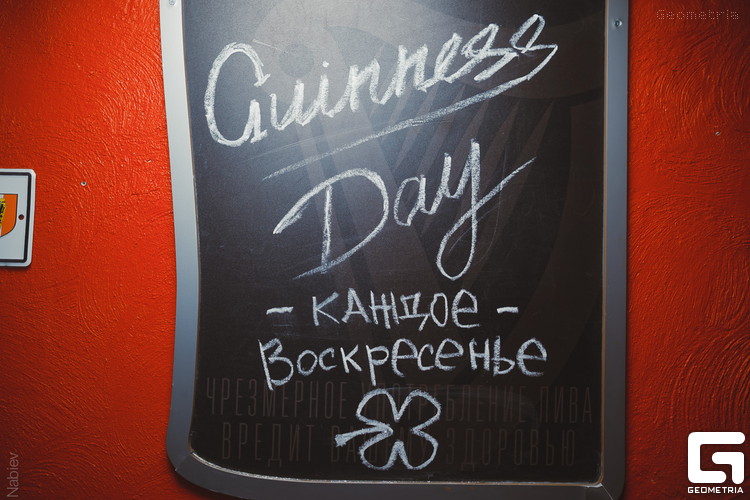 Geometria
Guinness
Day
- каждое -
Воскресенье
ЧРЕЗМЕРНОЕ УПОТРЕБЛЕНИЕ ПИВА
ВРЕДИТ ВАШЕМУ ЗДОРОВЬЮ
Nabiev
GEOMETRIA